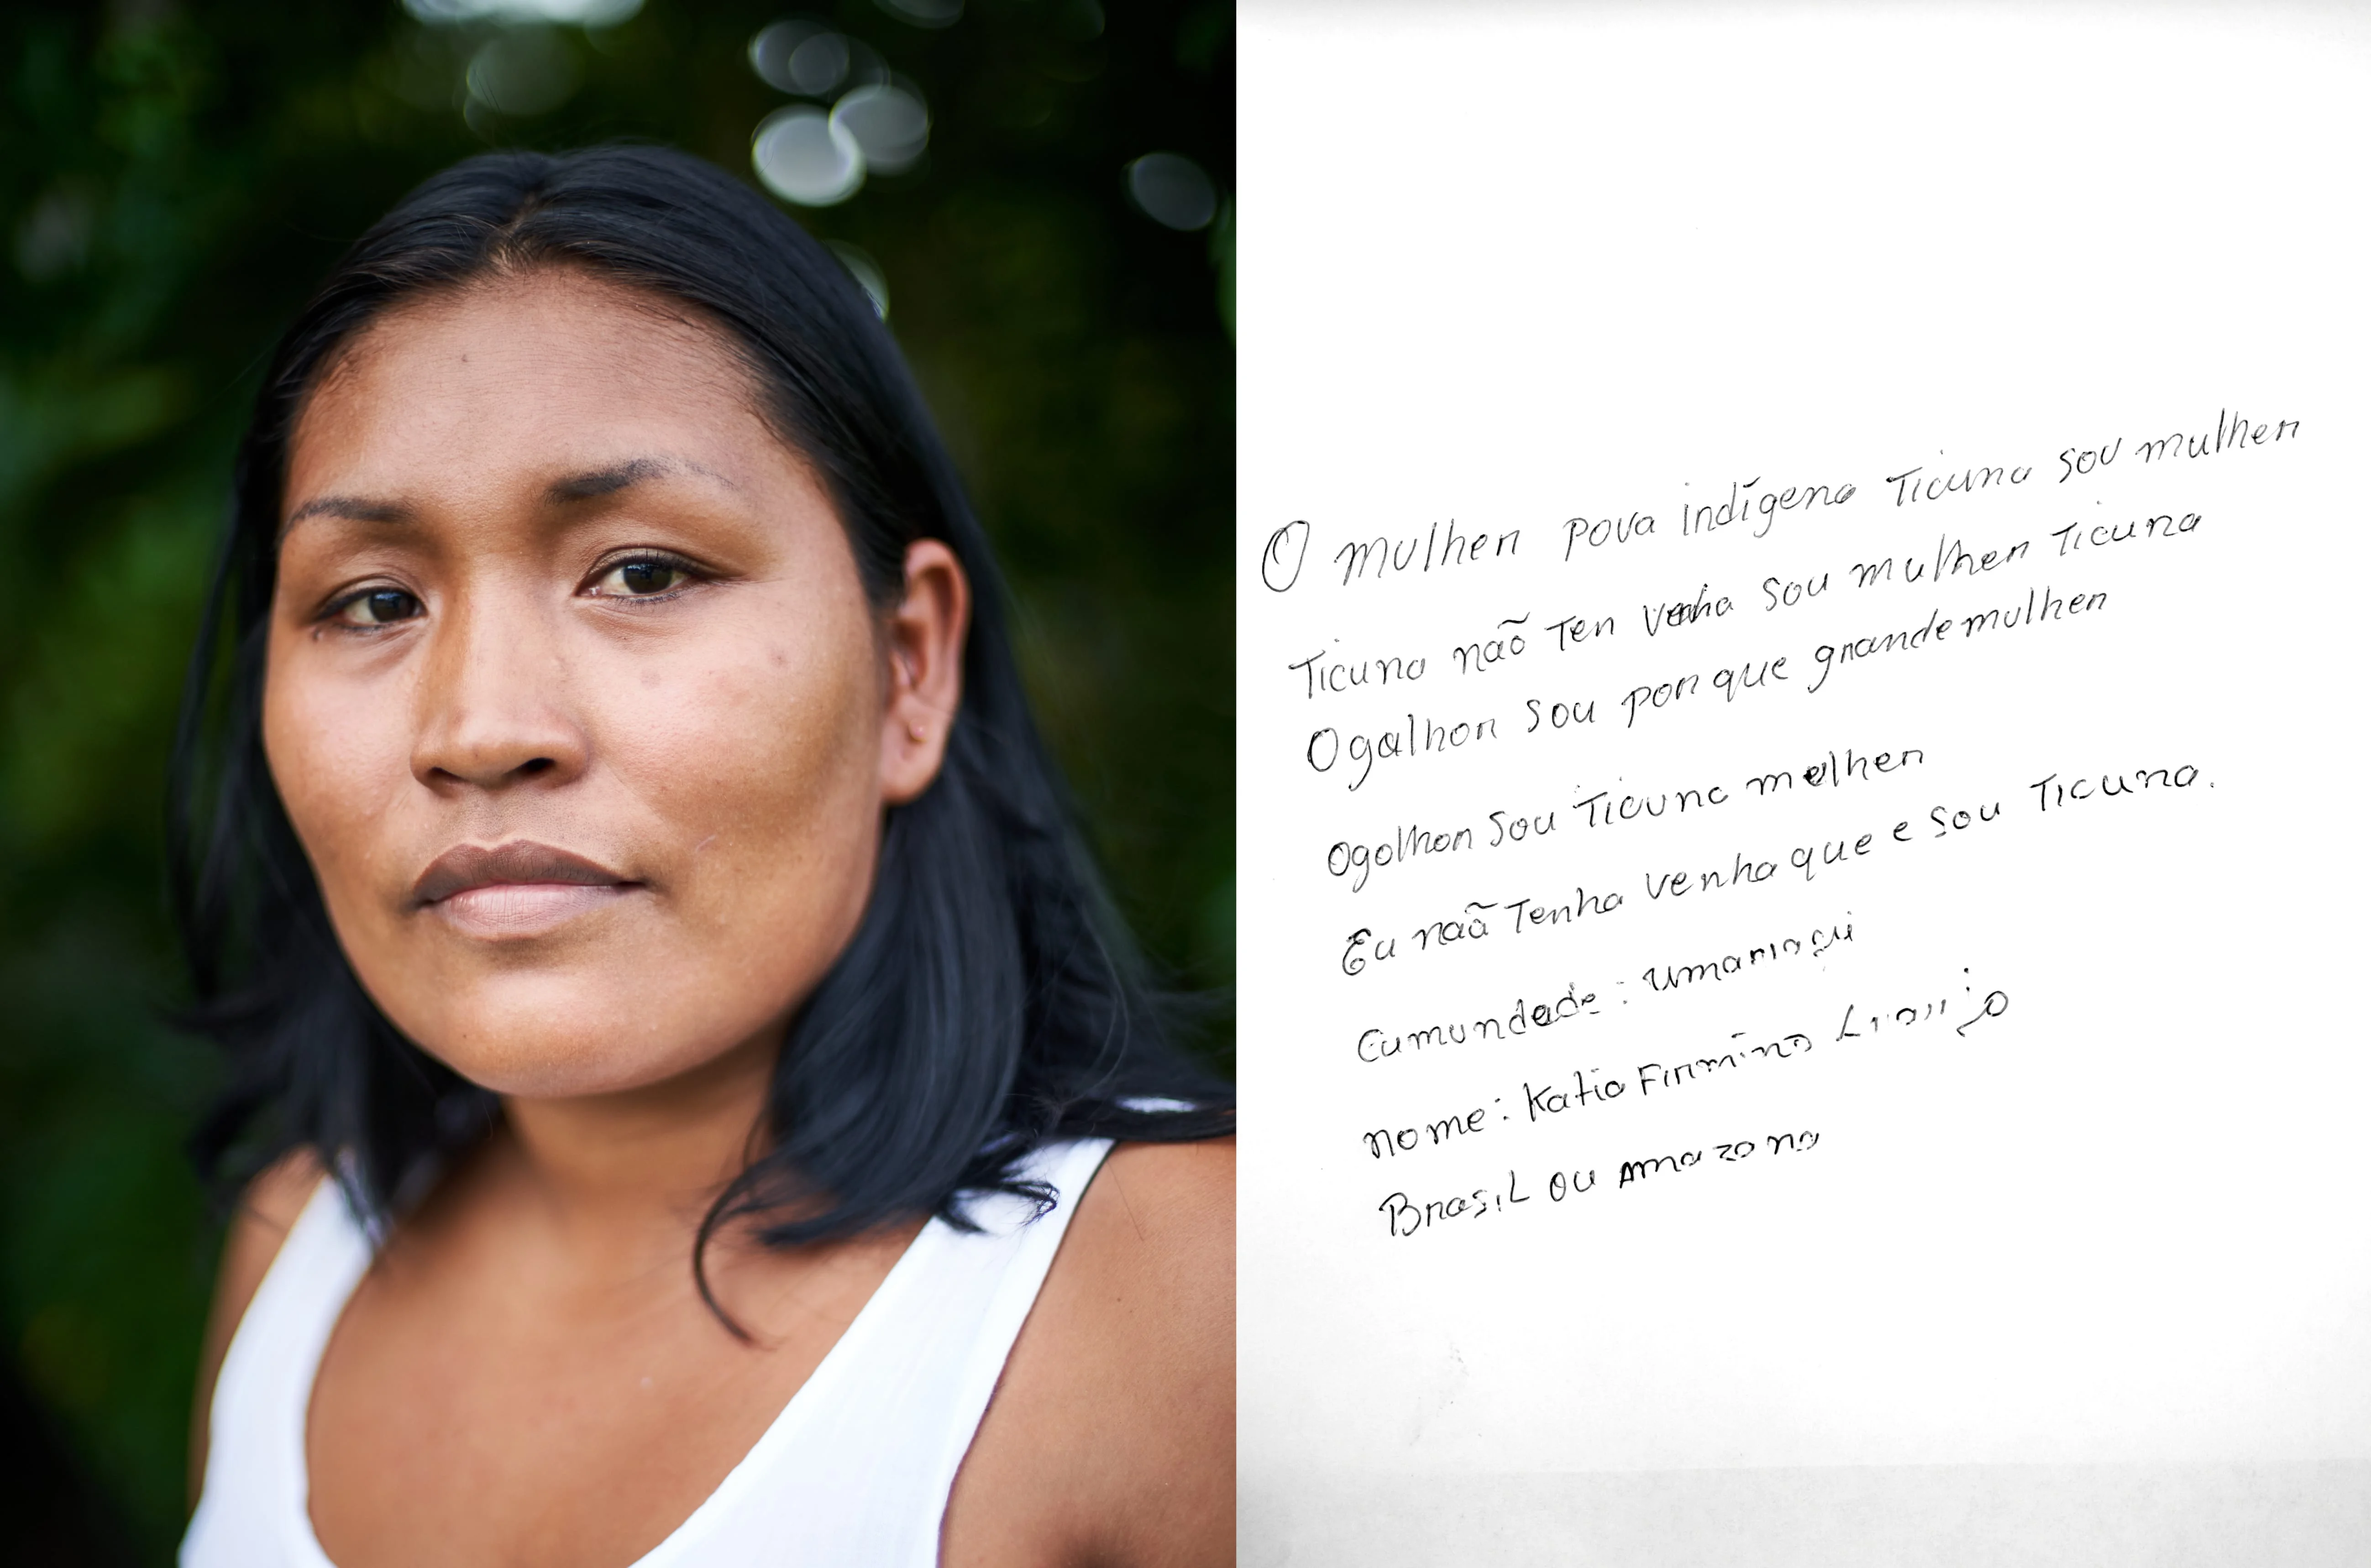 O mulher pova indígena Ticuna sou mulher
Ticuna não Ten venha sou mulher Ticuna
Ogalhor sou por que grande mulher
Ogolhor sou Ticuna melher
Eu naã Tenha venha que e sou Ticuna.
Cumundade: umariaçui
nome: Katia Firmino
Brasil ou amazona